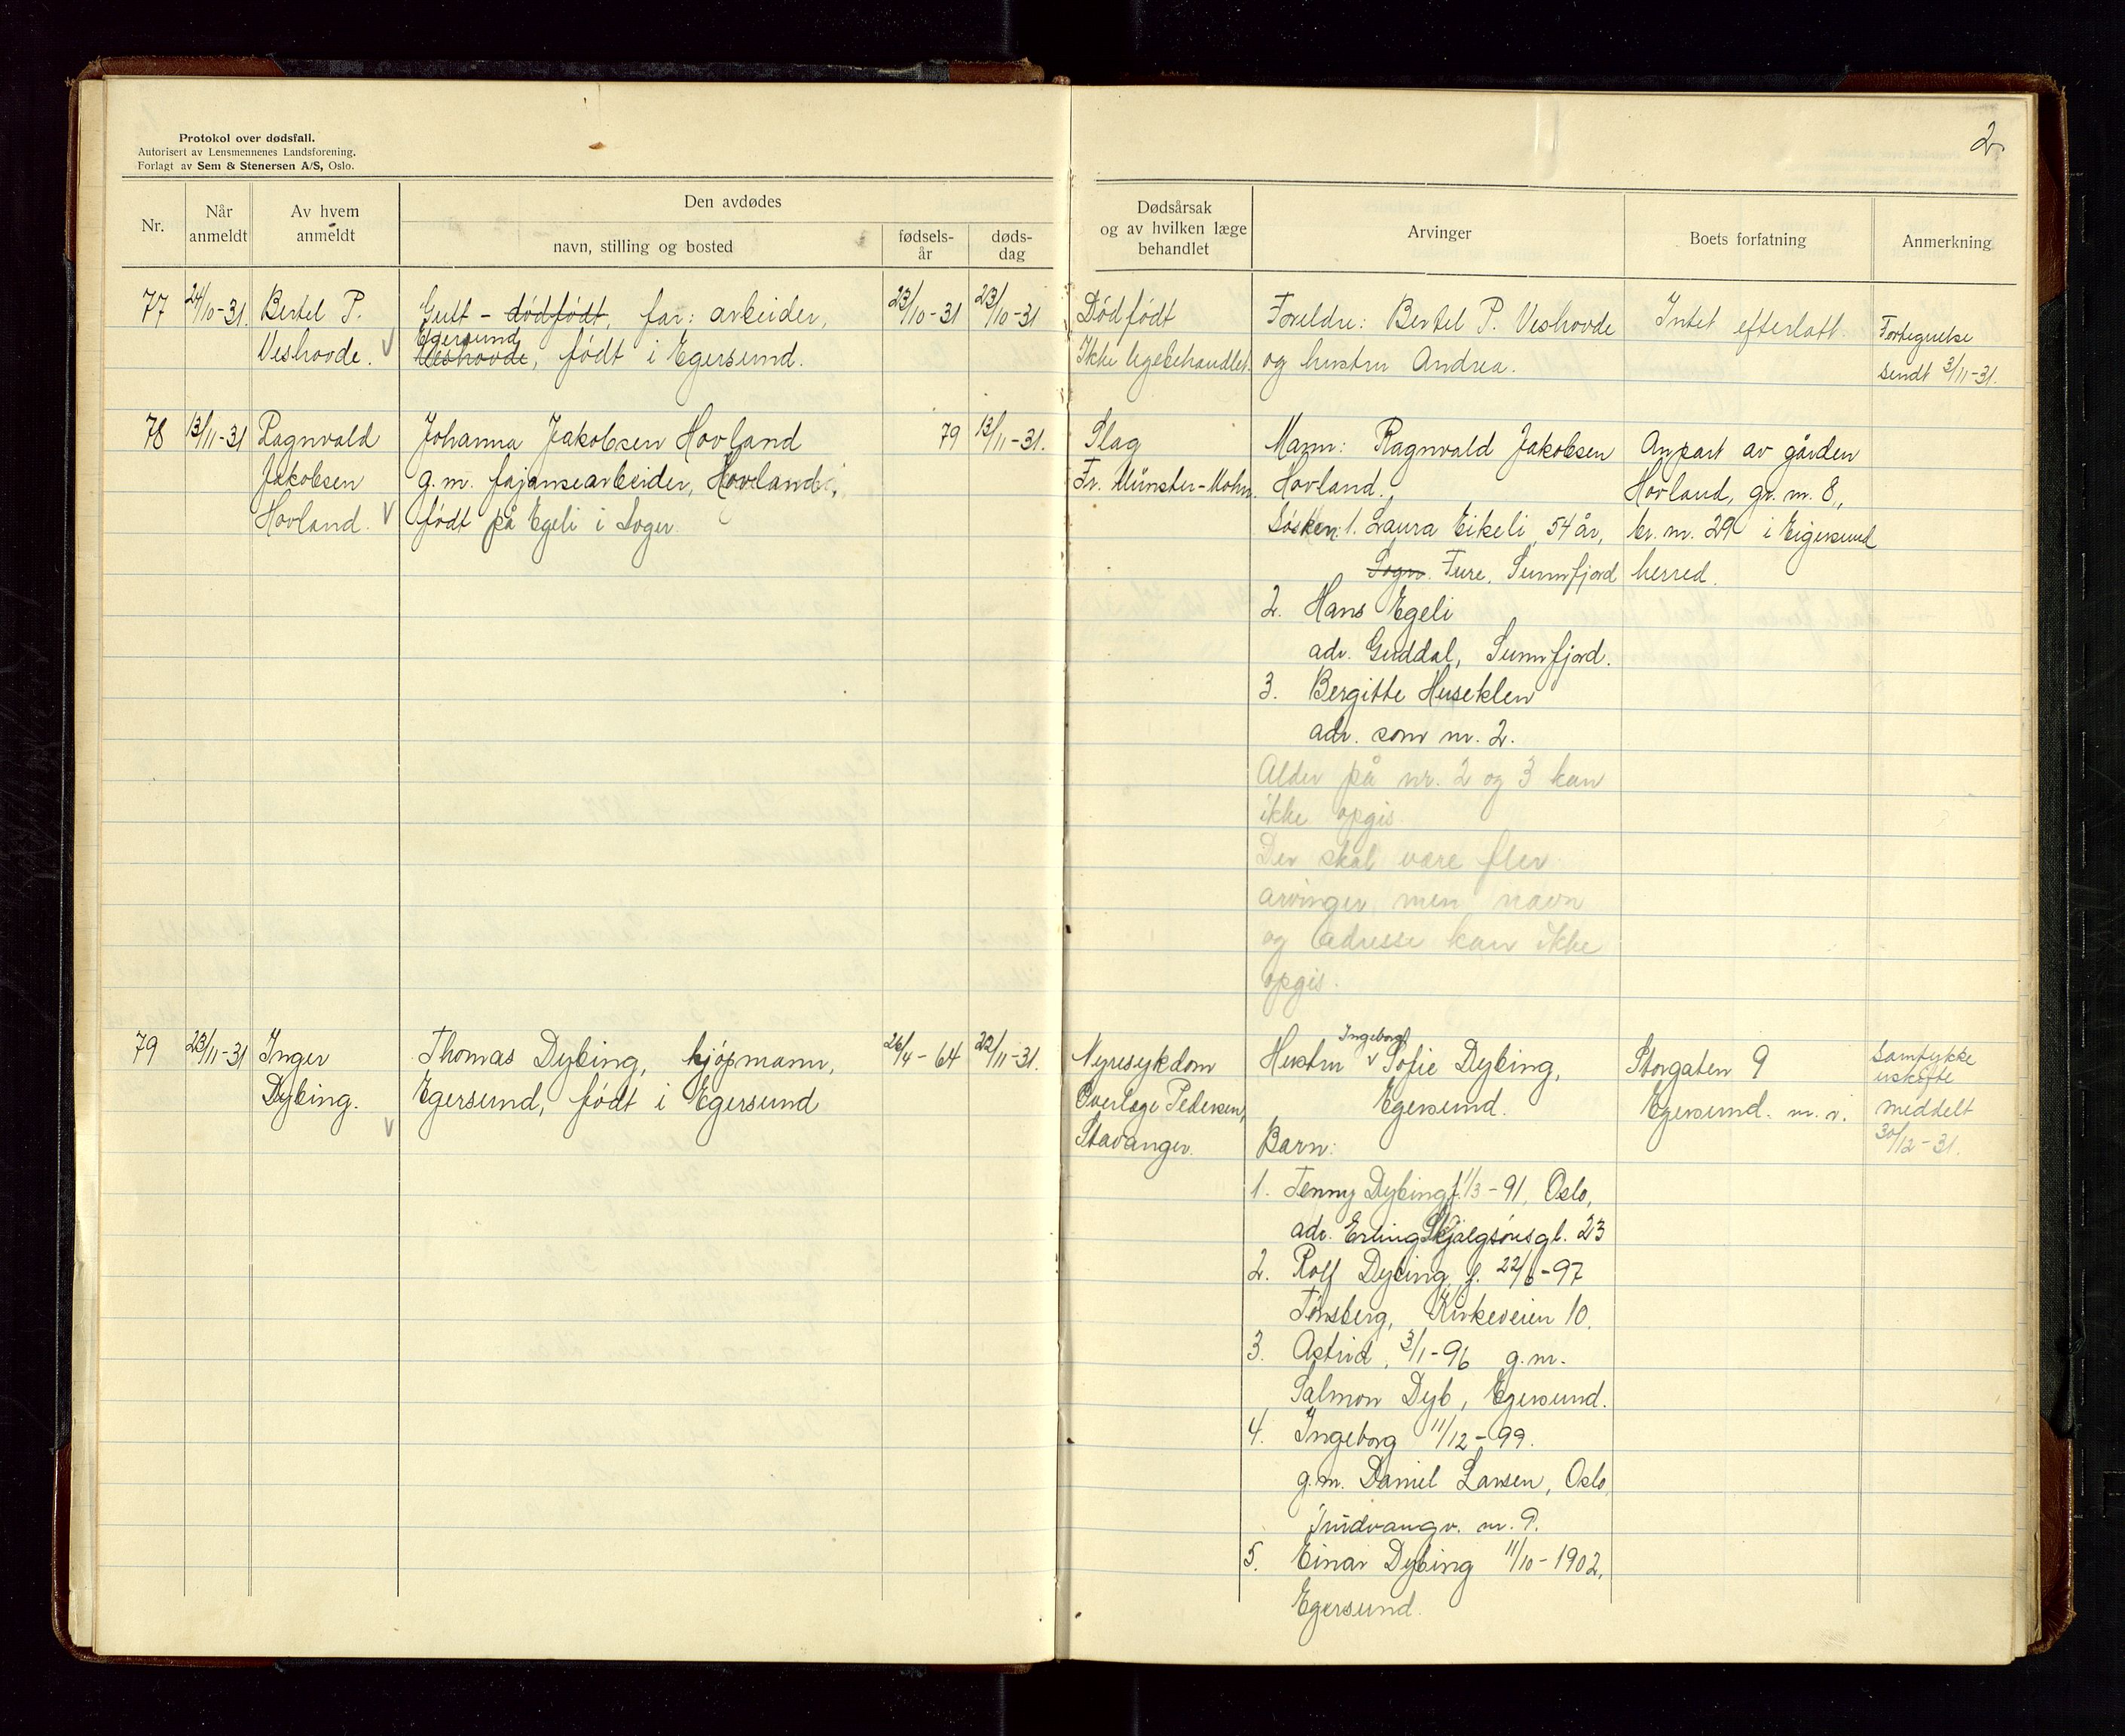 Protokol over dødsfall.
Autorisert av Lensmennenes Landsforening.
Forlagt av Sem & Stenersen A/S, Oslo.
2
Nr.
Når anmeldt
Av hvem anmeldt
Den avdødes
navn, stilling og bosted
fødsels-år
døds-dag
Dødsårsak og av hvilken læge behandlet
Arvinger
Boets forfatning
Anmerkning
77
24/10-31
Bertel P.
Veshovde.
Gutt - dødfødt, far: arbeider,
Egersund
Veshovde, født i Egersund.
23/10-31
23/10-31
Dødfødt
Ikke legebehandlet.
Foreldre: Bertel P. Veshovde
og hustru Andrea.
Intet efterlatt.
Fortegnelse
sendt 3/11-31.
78
13/11-31
Ragnvald
Jakobsen
Hovland.
Johanna Jakobsen Hovland
g.m. fajansearbeider, Hovland,
født på Egeli i Soger.
79
13/11-31.
Slag
Fr. Münster-Mohn.
Mann: Ragnvald Jakobsen
Hovland.
Søsken: 1. Laura Eikeli, 54 år,
Sogn. Fure, Sunnfjord
2. Hans Egeli
adr. Guddal, Sunnfjord.
3. Bergitte Huseklew
adr. som nr. 2.
Alder på nr. 2 og 3 kan
ikke opgis.
Der skal være fler
arvinger, men navn
og adresse kan ikke
opgis.
Anpart av gården
Hovland, gr. nr. 8,
br. nr. 29 i Eigersund
herred.
79
23/11-31
Inger
Dybing.
Thomas Dybing, kjøpmann,
Egersund, født i Egersund
26/4-64
22/11-31.
Nyresykdom
Overlæge Pedersen,
Stavanger.
Ingeborg
Hustru v Sofie Dybing,
Egersund.
Barn:
1. Jenny Dybing f. 1/3-91, Oslo,
adr. Erling Skjalgsønsgt. 23
2. Rolf Dybing, f. 22/6-97
Tønsberg, Kirkeveien 10.
3. Astrid, 3/1-96 g.m.
Salmon Dyb, Egersund.
4. Ingeborg 11/12-99.
g.m. Daniel Larsen, Oslo
nr. 9.
5. Einar Dybing 11/10-1902,
Egersund.
Storgaten 9
Egersund. m. v.
Samtykke
uskifte
meddelt
30/12-31.